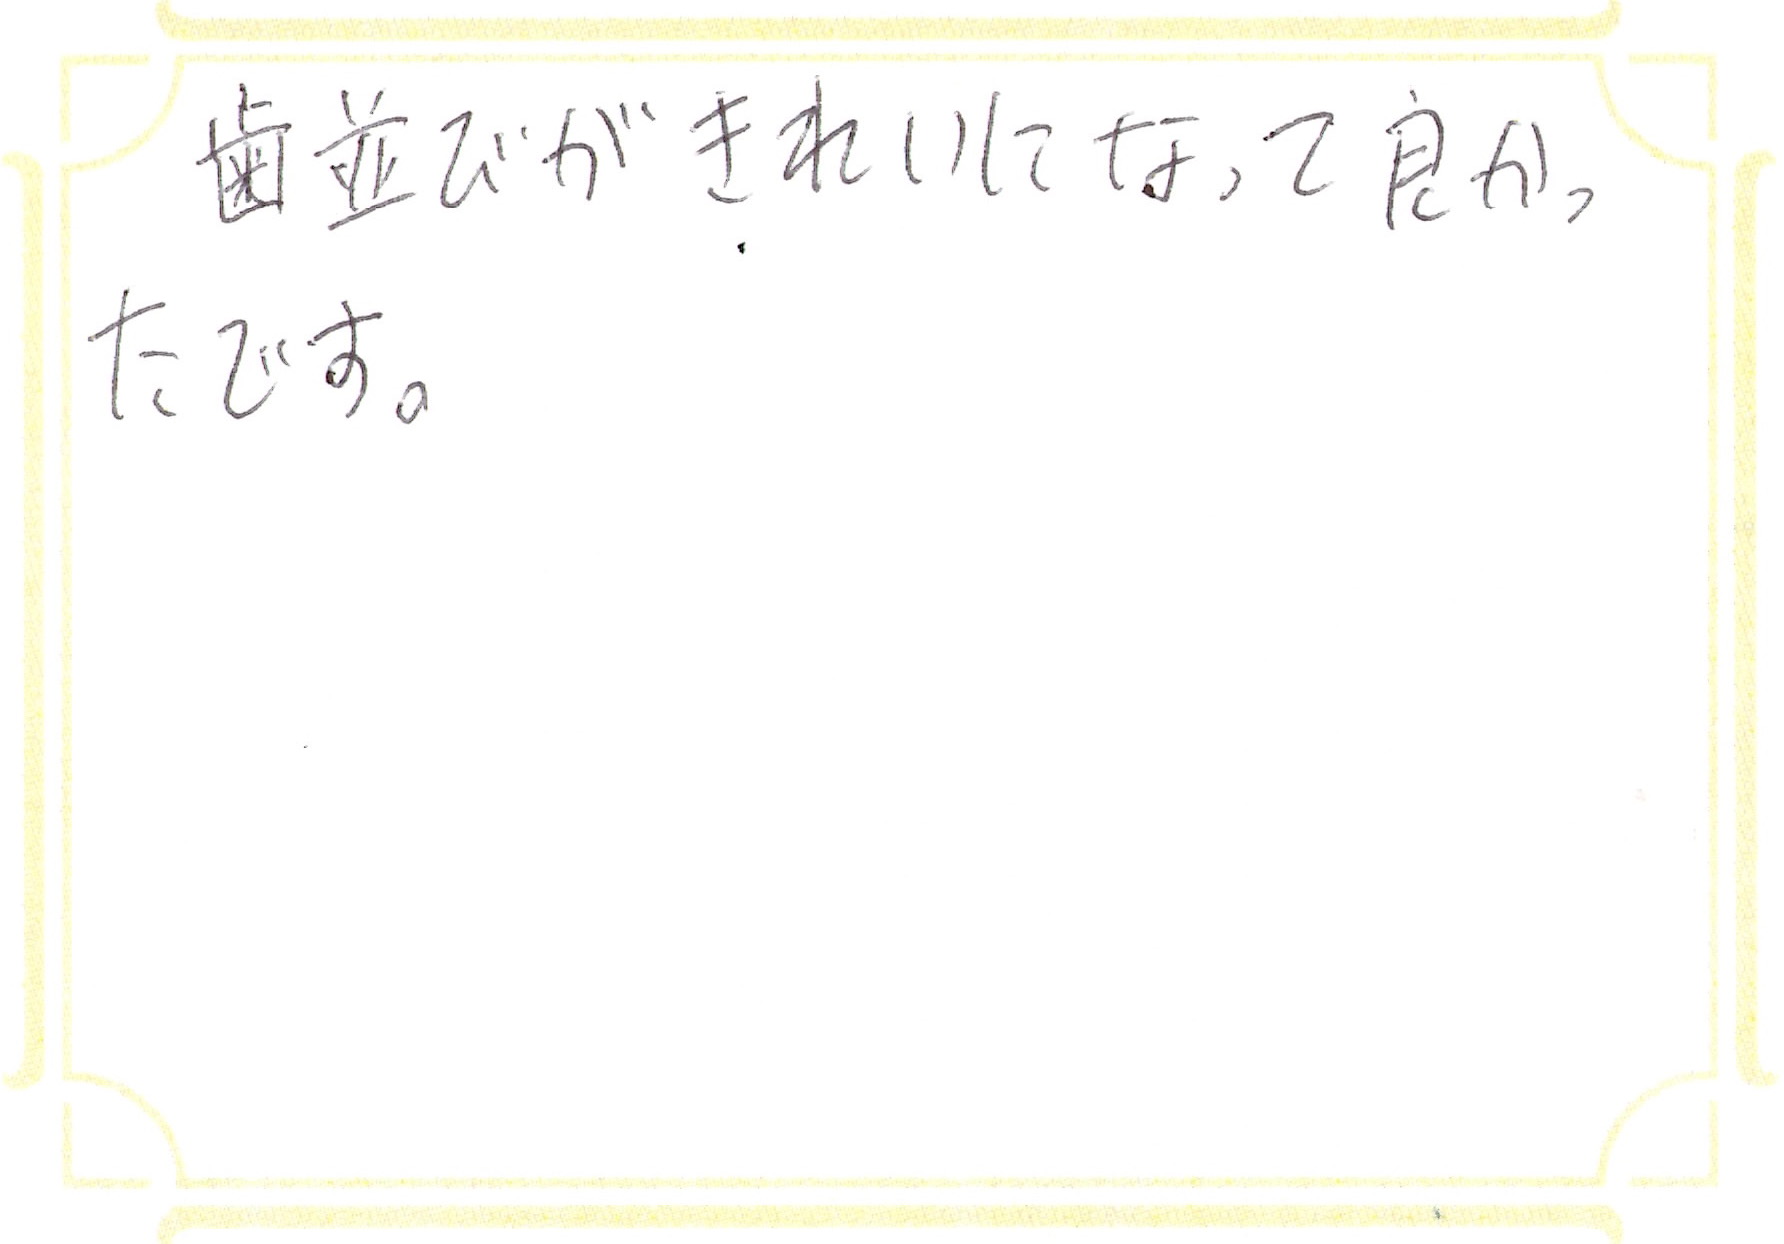 歯並びがきれいになって良かっ
たです。